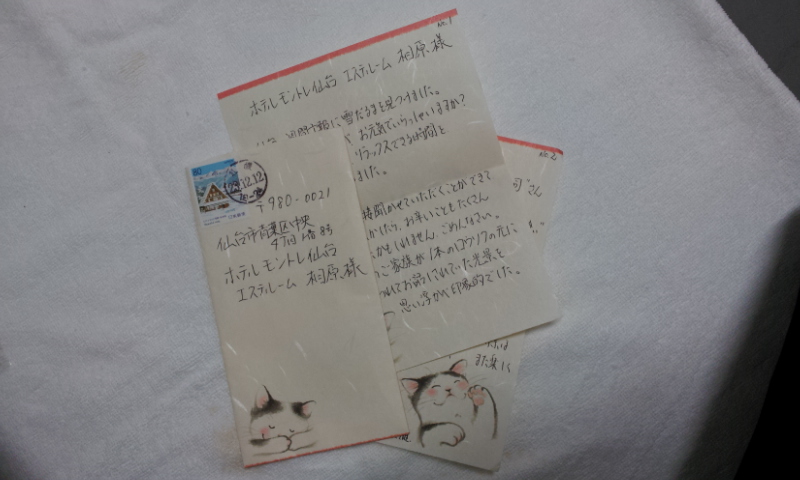 No.1
ホテルモントレ仙台 エステルーム 相原様
に雪だるまを見つけました。
お元気でいらっしゃいますか?
リラックスできる時間と
ました。
接聞かせていただくことができて
お辛いこともたくさん
かもしれません。ごめんなさい。
ご家族が1本のロウソクの元に
ついてお話しされていた光景を
思い浮かべ印象的でした。
No.2
さん
!!
また楽しく
80
12.12
〒980-0021
仙台市青葉区中央
4丁目1番8号
ホテルモントレ仙台
エステルーム 相原様